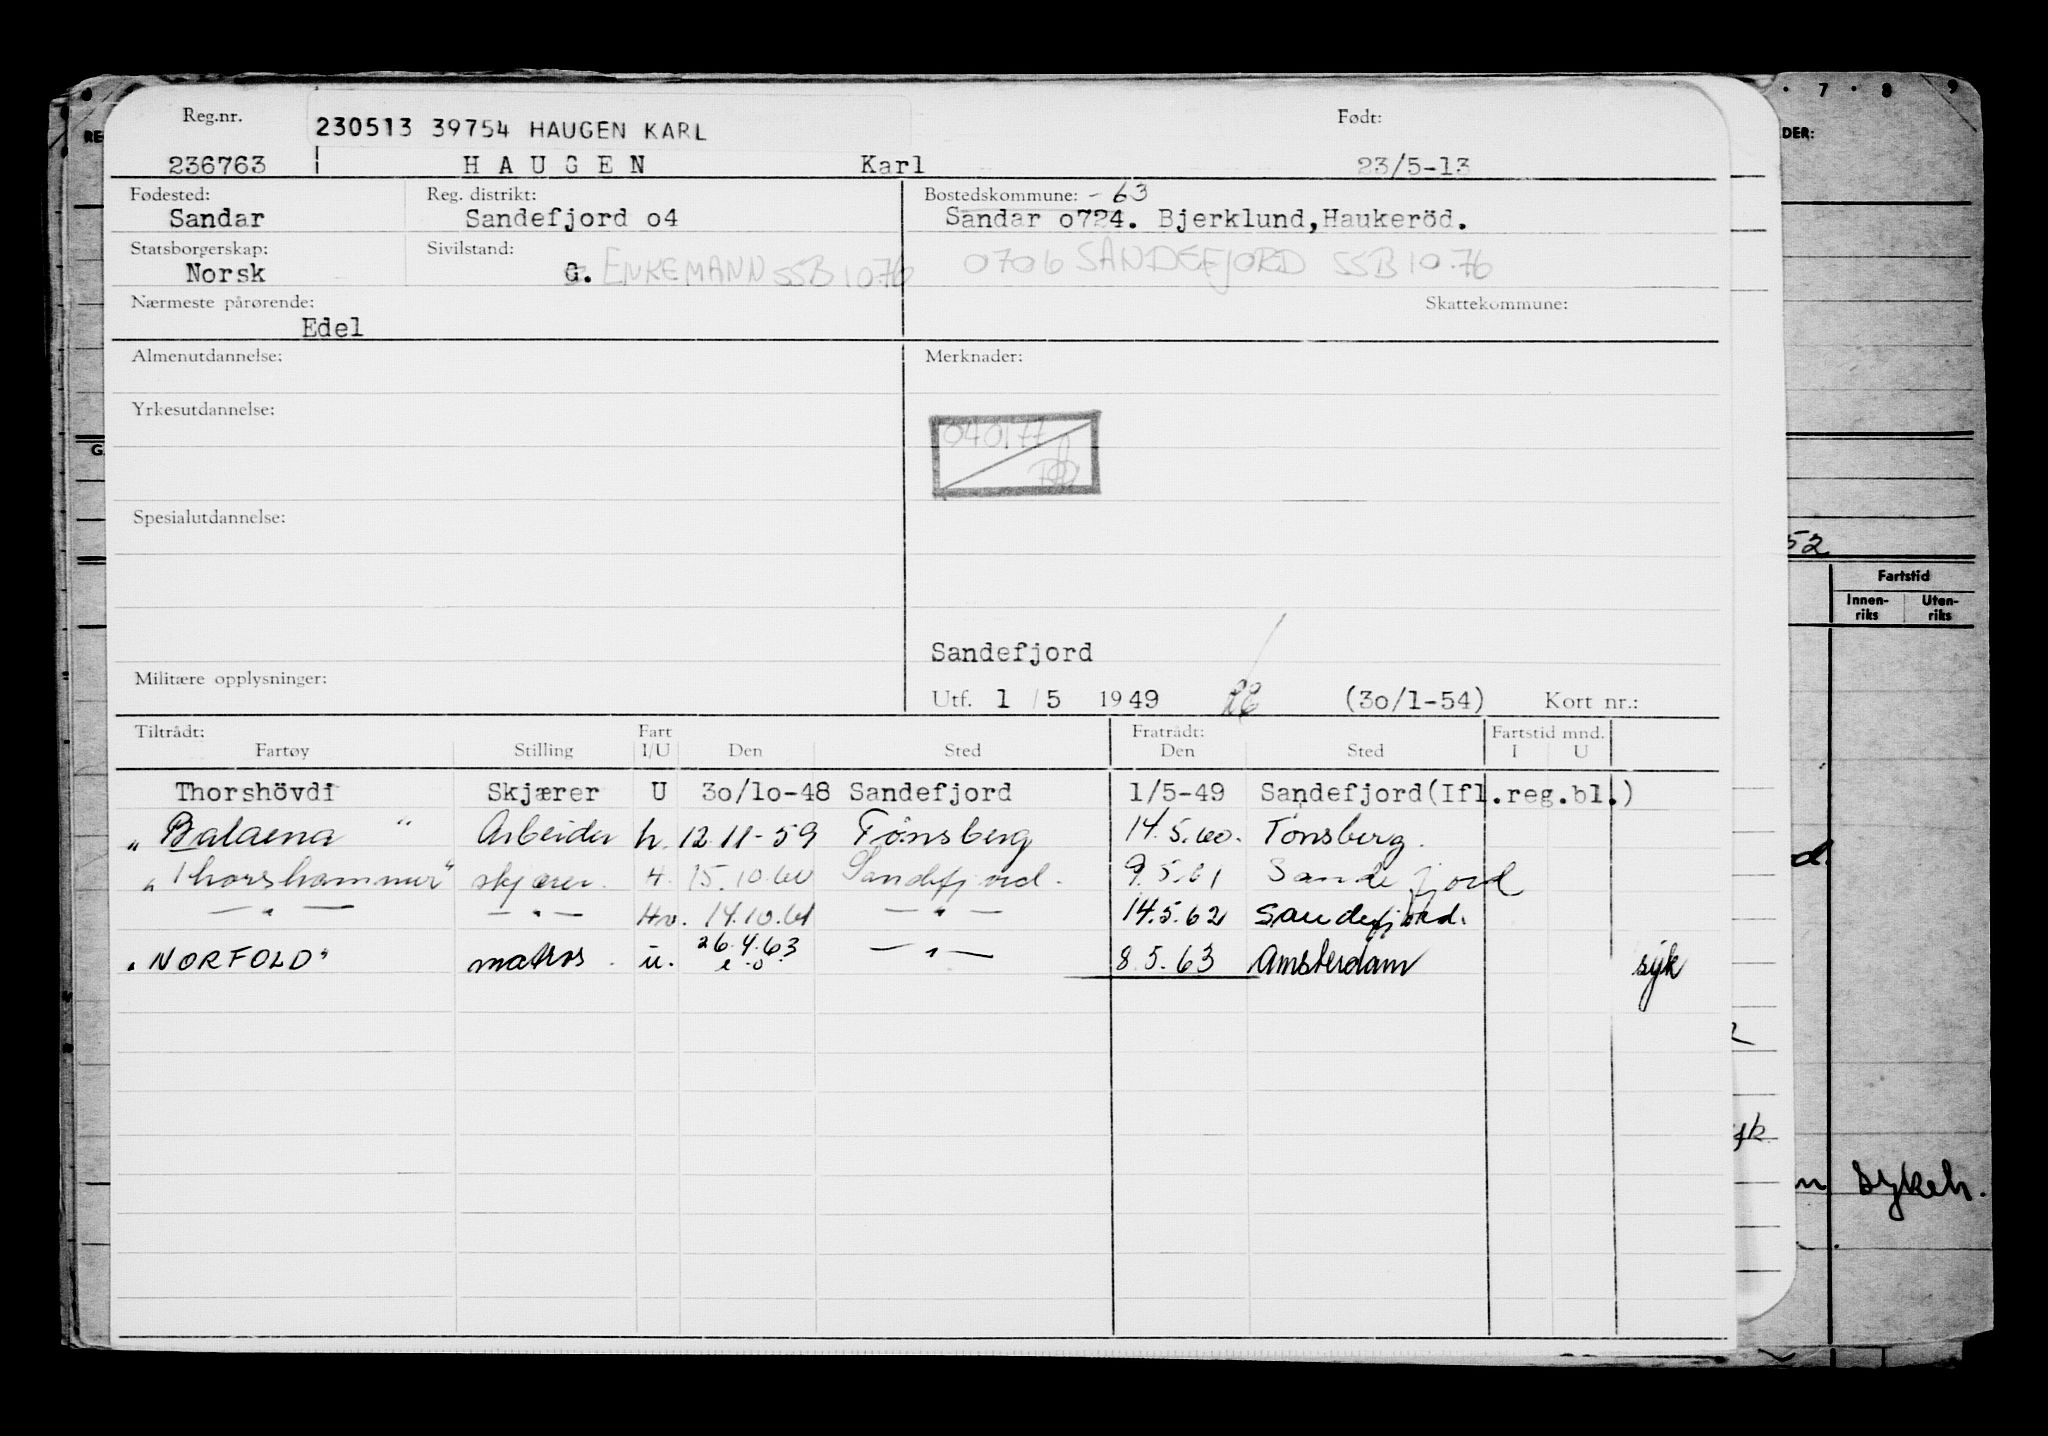 Reg.nr.
230513 39754 HAUGEN KARL
Født:
236763 HAUGEN Karl 23/5-13
Fødested: Reg. distrikt: Bostedskommune: -63
Sandar Sandefjord o4 Sandar o724. Bjerklund,Haukeröd.
Statsborgerskap: Sivilstand:
Norsk G. ENKEMANN SSB 10.76 0706 SANDEFJORD SSB 10.76
Nærmeste pårørende: Skattekommune:
Edel
Almenutdannelse: Merknader:
Yrkesutdannelse:
040177
Spesialutdannelse:
Sandefjord
Militære opplysninger:
Utf. 1 / 5 1949 (3o/1-54) Kort nr.:
Tiltrådt: Fart Fratrådt: Fartstid mnd.
Fartøy Stilling I/U Den Sted Den Sted I U
Thorshövdi Skjærer U 3o/1o-48 Sandefjord 1/5-49 Sandefjord(Ifl.reg.bl.)
„Balaena" Arbeider h. 12.11-59 Tønsberg 14.5.60. Tønsberg.
„Thorshammer" skjærer. H. 15.10.60 Sandefjord. 9.5.61 Sandefjord
— " — — " — Hv. 14.10.61 — " — 14.5.62 Sandefjord.
„NORFOLD" matros. u. 26.4.63 — " — 8.5.63 Amsterdam syk
DER:
7 8 9
52
Fartstid
Innen-
riks
Uten-
riks
d.
n sykeh.